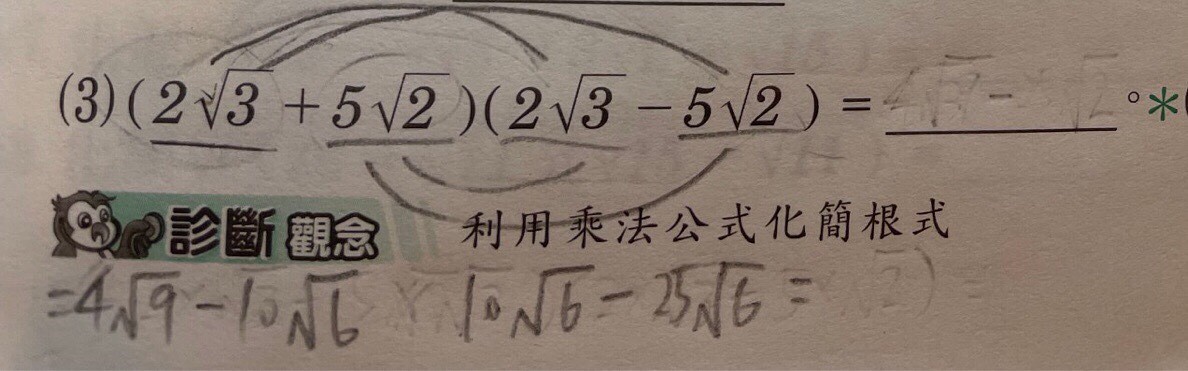 (3)(2√3 + 5√2)(2√3 − 5√2) = 。*
診斷觀念 利用乘法公式化簡根式
=4√9 − 10√6 10√6 − 25√6 =